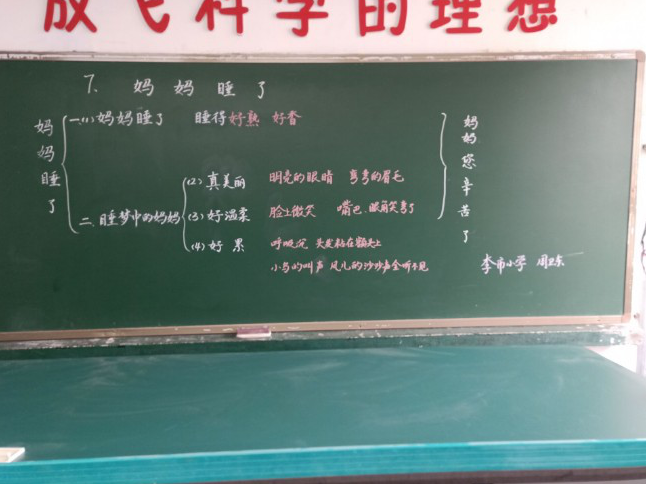 放飞科学的理想
7、妈妈睡了
妈妈睡了
一、(1)妈妈睡了 睡得好熟 好香
二、睡梦中的妈妈
(2)真美丽 明亮的眼睛 弯弯的眉毛
(3)好温柔 脸上微笑 嘴巴、眼角笑弯了
(4)好累 呼吸沉 头发粘在额头上
小鸟的叫声 风儿的沙沙声全听不见
妈妈您辛苦了
李市小学 周卫东